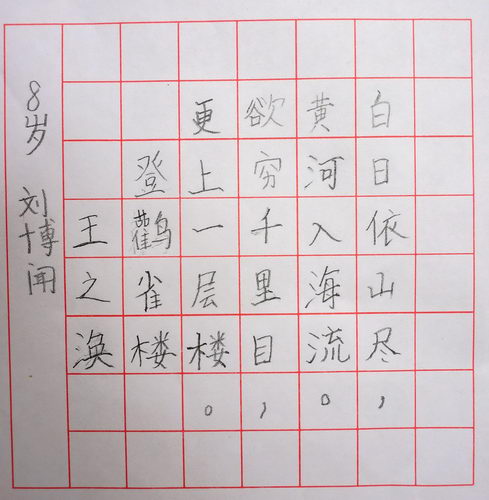 白日依山尽，
黄河入海流。
欲穷千里目，
更上一层楼。
登鹳雀楼
王之涣
8岁 刘博闻